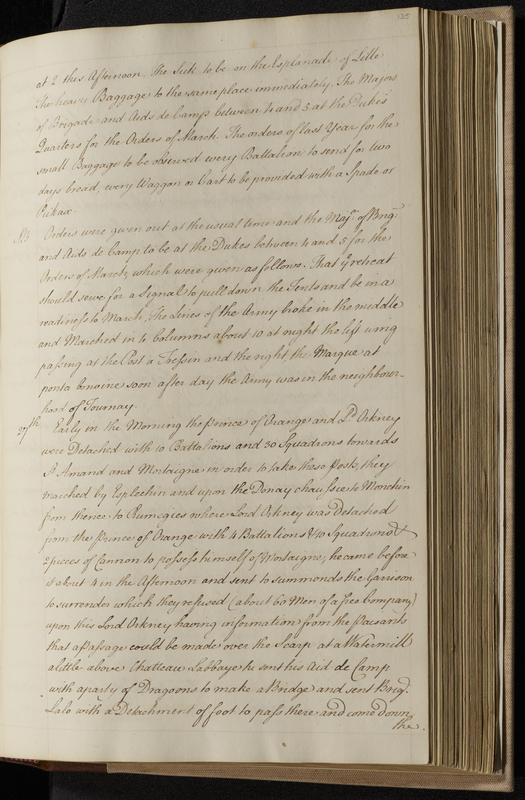 125
at 2 this Afternoon. The Sick to be on the Esplanade of Lille
The heavy Baggage to the same place immediately. The Majors
of Brigade and Aids de Camp between 4 and 5 at the Dukes
Quarters for the Orders of March. The orders of last Year for the
small Baggage to be observed every Battalion to send for two
days bread, every Waggon or Cart to be provided with a Spade or
Pickax.
NB Orders were given out at the usual time and the Majrs. of Brigs.
and Aids de Camp to be at the Dukes between 4 and 5 for the
Orders of March, which were given as follows. That ye retreat
should serve for a Signal to pull down the Tents and be in a
readiness to March. The Lines of the Army broke in the middle
and Marched in 4 Columns about 10 at night the left wing
passing at the Post a Tressin and the right the Marque at
ponta bovine soon after day the Army was in the neighbour-
hood of Tournay.
27th Early in the Morning the Prince of Orange and Ld. Orkney
were Detached with 10 Battalions and 30 Squadrons towards
St Amand and Mortaigne in order to take those Posts, they
marched by Esplechin and upon the Douay chaussee to Monchin
from thence to Rumegies where Lord Orkney was Detached
from the Prince of Orange with 4 Battalions & 10 Squadrons &
2 pieces of Cannon to possess himself of Mortaigne, he came before
it about 4 in the Afternoon and sent to summonds the Garison
to surrender which they refused (about 60 Men of a free Company)
upon this Lord Orkney having information from the Paisants
that a Passage could be made over the Scarp at a Watermill
a little above Chatteau Labbaye he sent his Aid de Camp
with a party of Dragoons to make a Bridge and sent Brigr.
Lalo with a Detachment of foot to pass there and come down
the.